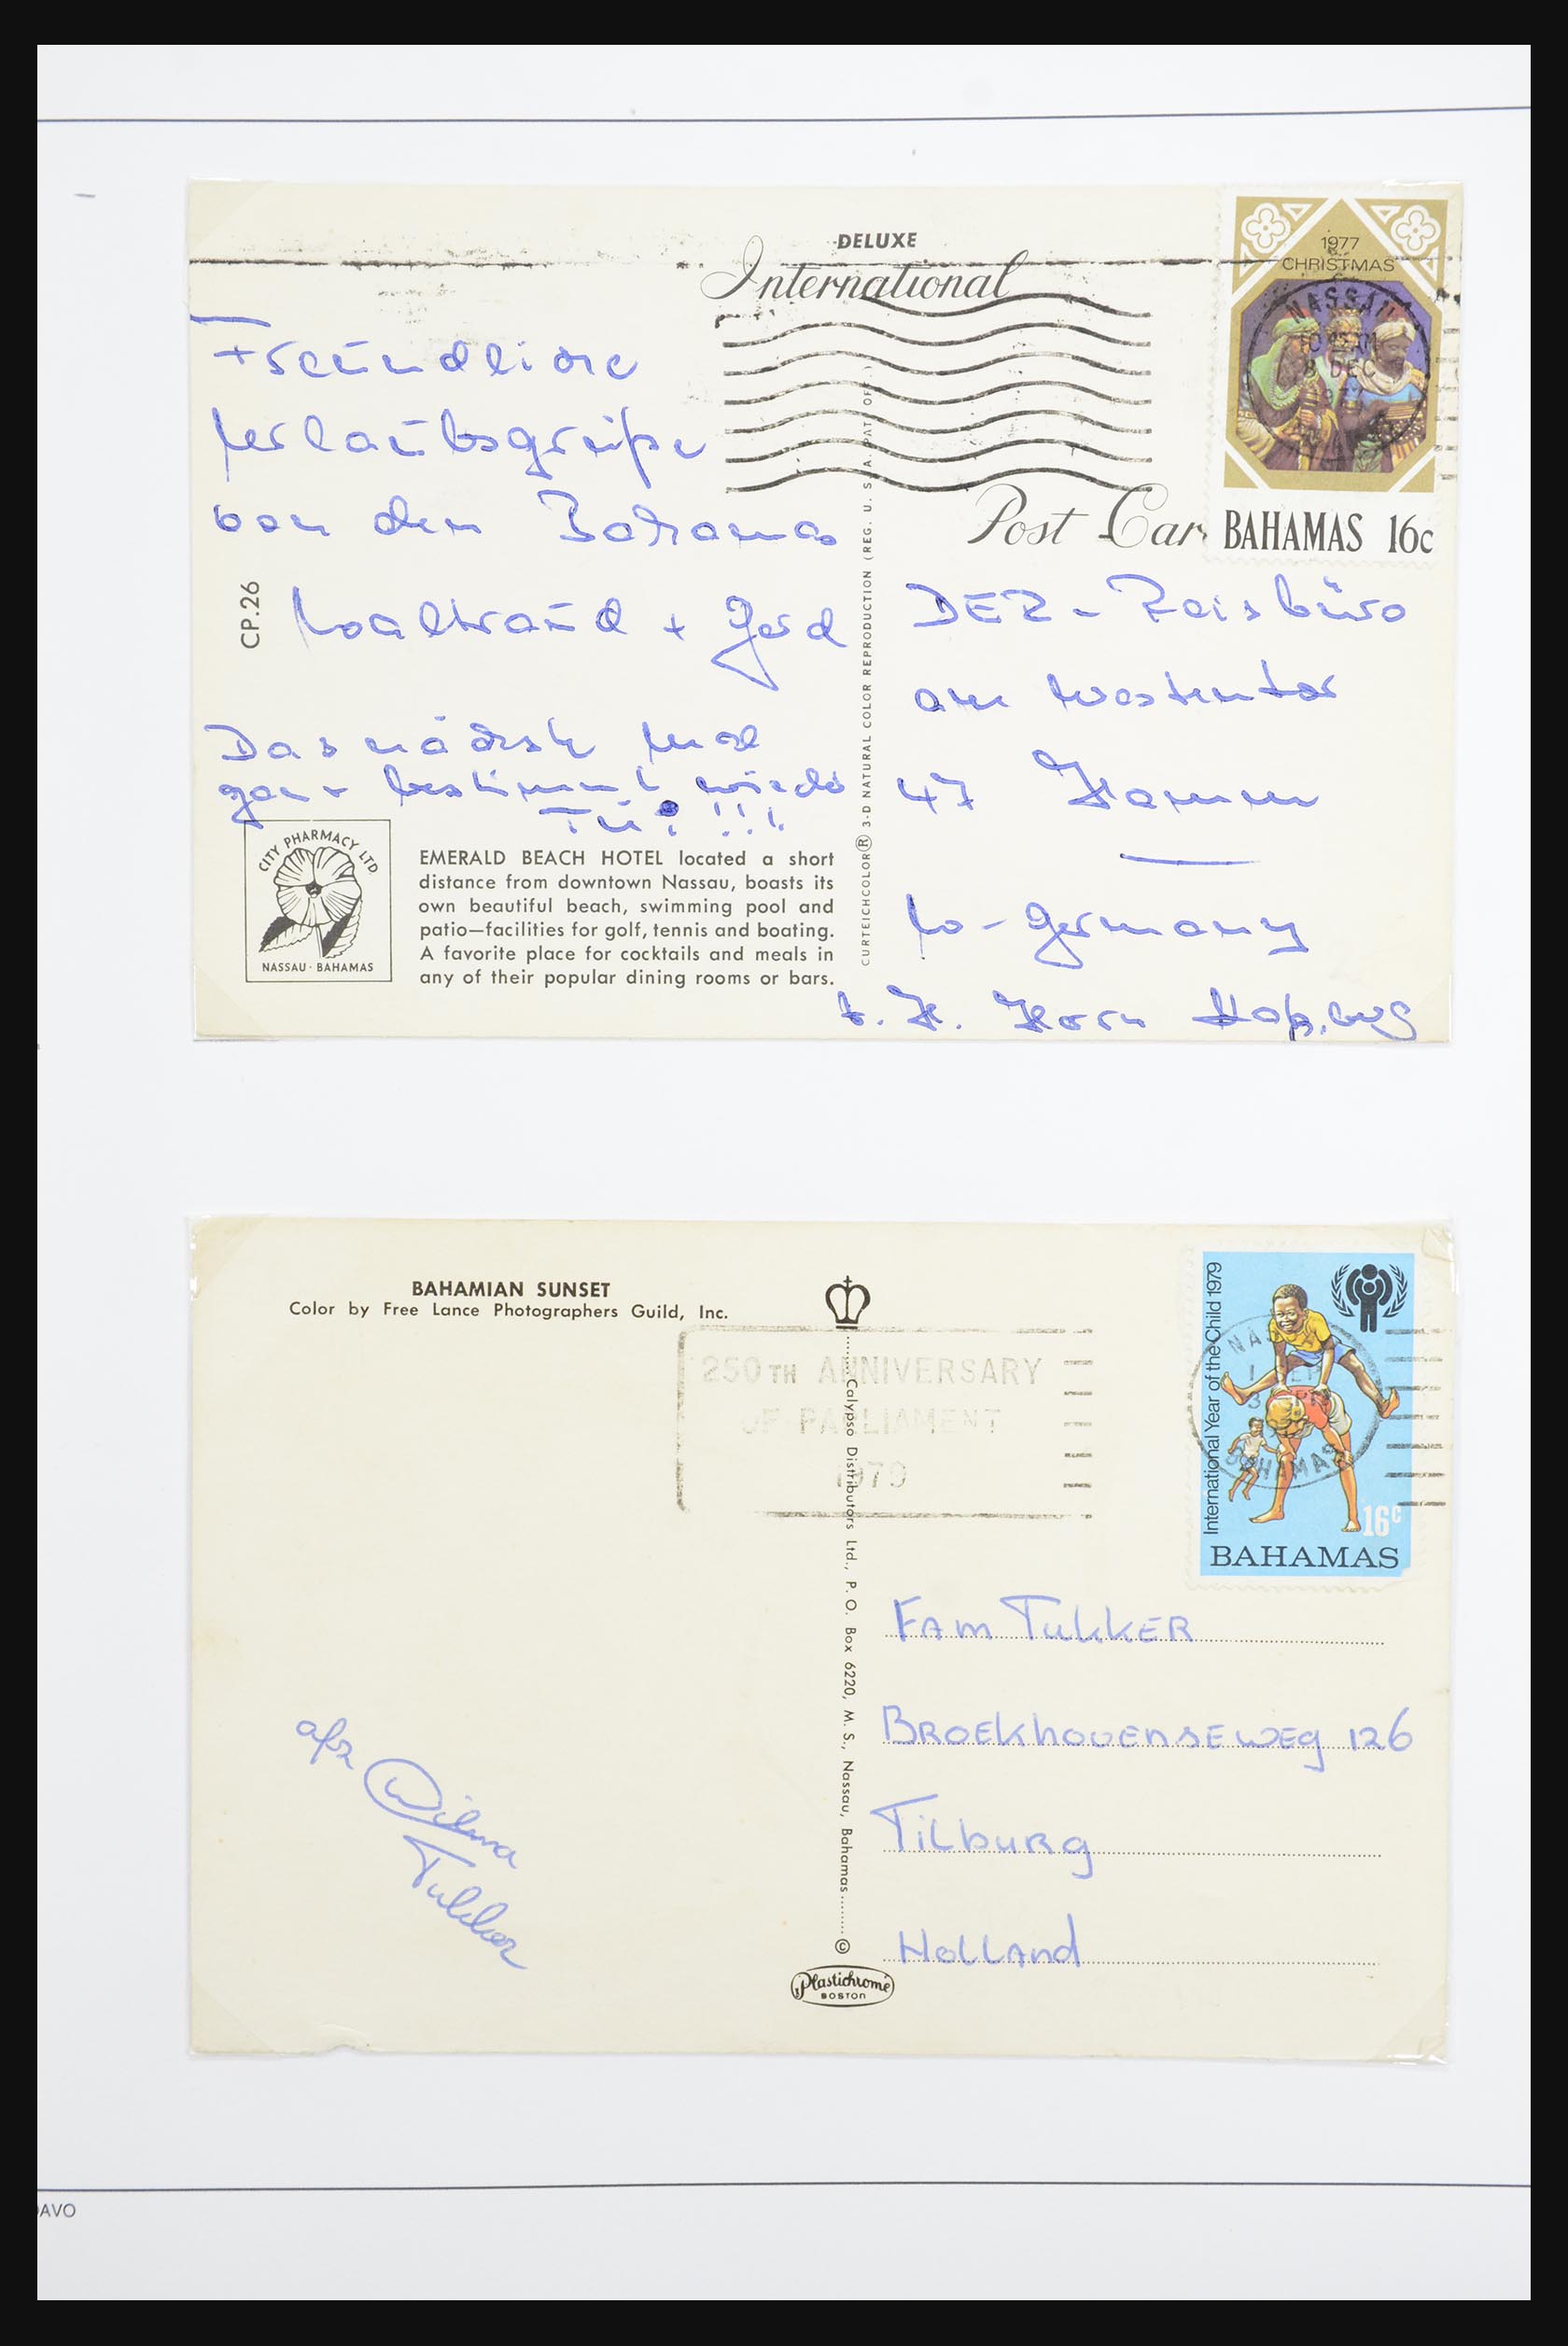 DELUXE
International
1977
CHRISTMAS
NASSAU
8 DEC
Post Car
BAHAMAS 16c
Freundliche
Urlaubsgrüße
von den Bahamas
Waltraud + Gerd
CP.26
Das nächste Mal
ganz bestimmt wieder
TUI !!!
CITY PHARMACY LTD.
NASSAU · BAHAMAS
EMERALD BEACH HOTEL located a short
distance from downtown Nassau, boasts its
own beautiful beach, swimming pool and
patio—facilities for golf, tennis and boating.
A favorite place for cocktails and meals in
any of their popular dining rooms or bars.
CURTEICHCOLOR® 3-D NATURAL COLOR REPRODUCTION (REG. U. S. A. PAT. OFF.)
DER-Reisebüro
am Westentor
47 Hamm
W-Germany
z. H. Horn
BAHAMIAN SUNSET
Color by Free Lance Photographers Guild, Inc.
250TH ANNIVERSARY
OF PARLIAMENT
1979
Calypso Distributors Ltd., P. O. Box 6220, M. S., Nassau, Bahamas
©
Plastichrome
BOSTON
International Year of the Child 1979
16c
BAHAMAS
BAHAMAS
FAM TUKKER
BROEKHOVENSEWEG 126
TILBURG
HOLLAND
afz Wilma
Tukker
DAVO